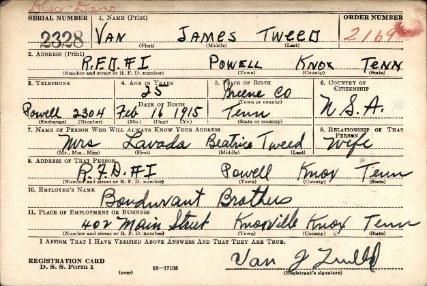 SERIAL NUMBER 1. NAME (Print) ORDER NUMBER
2328 VAN JAMES TWEED 2169
(First) (Middle) (Last)
2. ADDRESS (Print)
R.F.D. #1 POWELL KNOX TENN
(Number and street or R. F. D. number) (Town) (County) (State)
3. TELEPHONE 4. AGE IN YEARS 5. PLACE OF BIRTH 6. COUNTRY OF CITIZENSHIP
25 Greene Co.
DATE OF BIRTH (Town or county)
Powell 2304 Feb 16 1915 Tenn U.S.A.
(Exchange) (Number) (Mo.) (Day) (Yr.) (State or country)
7. NAME OF PERSON WHO WILL ALWAYS KNOW YOUR ADDRESS 8. RELATIONSHIP OF THAT PERSON
Mrs Lavada Beatrice Tweed Wife
(Mr., Mrs., Miss) (First) (Middle) (Last)
9. ADDRESS OF THAT PERSON
R.F.D. #1 Powell Knox Tenn
(Number and street or R. F. D. number) (Town) (County) (State)
10. EMPLOYER'S NAME
Bondurant Brothers
11. PLACE OF EMPLOYMENT OR BUSINESS
402 Main Street Knoxville Knox Tenn
(Number and street or R. F. D. number) (Town) (County) (State)
I AFFIRM THAT I HAVE VERIFIED ABOVE ANSWERS AND THAT THEY ARE TRUE.
REGISTRATION CARD
D. S. S. Form 1 (over) 16-17105 Van J Tweed
(Registrant's signature)